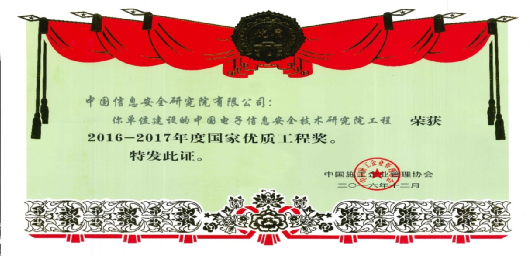 中国信息安全研究院有限公司：
你单位建设的中国电子信息安全技术研究院工程 荣获
2016-2017年度国家优质工程奖。
特发此证。
中国施工企业管理协会
二〇一六年十二月